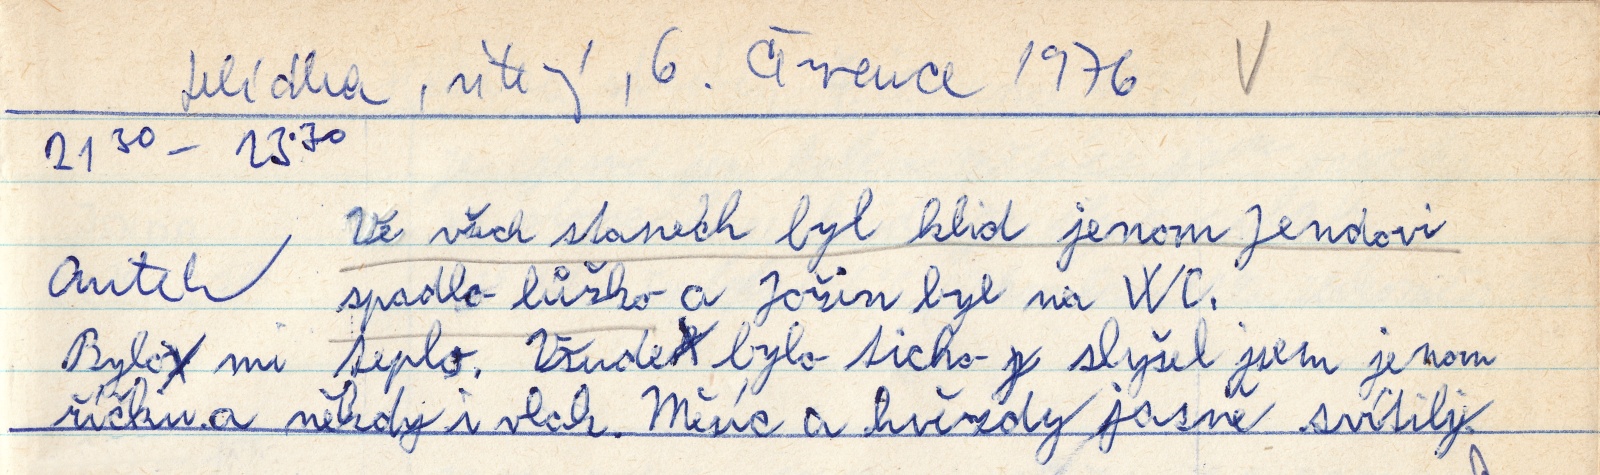 hlídka, úterý, 6. Července 1976 V
21 30 - 23.30
Ve všech stanech byl klid jenom Jendovi
spadlo lůžko a Jožin byl na WC.
Bylo mi teplo. Všude bylo ticho slyšel jsem jenom
říčku a někdy i vlak. Měsíc a hvězdy jasně svítily